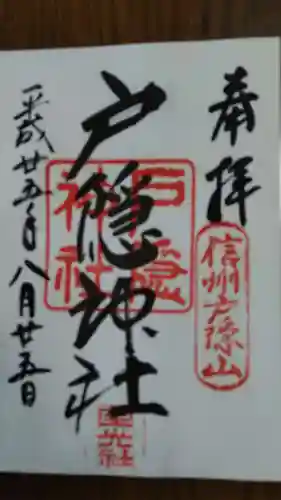 奉拝
信州戸隠山
戸隠神社
戸隠神社
宝光社
平成廿五年八月廿五日